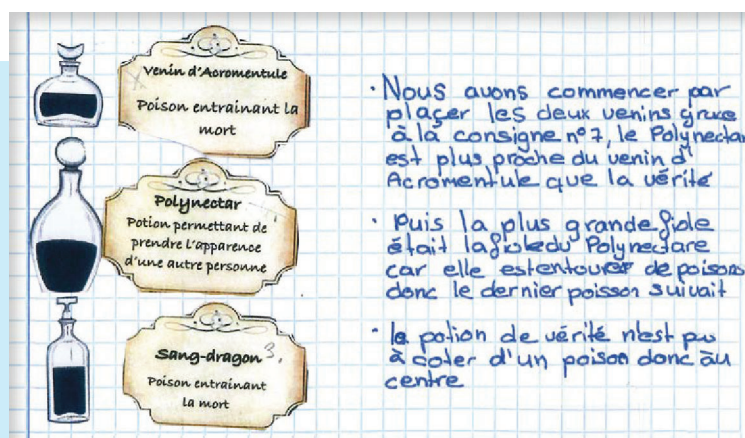 Venin d'Acromentule
Poison entrainant la
mort
Polynectar
Potion permettant de
prendre l'apparence
d'une autre personne
Sang-dragon 3.
Poison entrainant
la mort
· Nous avons commencer par
plaçer les deux venins grace
à là consigne n°7, le Polynectar
est plus proche du venin d'
Acromentule que la vérité
· Puis la plus grande fiole
était la fiole du Polynectare
car elle est entourer de poisons
donc le dernier poisson suivait
· la potion de vérité n'est pas
à coter d'un poison donc au
centre